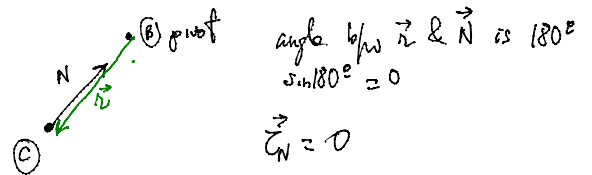 B pivot
N
r⃗
C
angle b/w r⃗ & N⃗ is 180°
sin180° = 0
τ⃗_N = 0